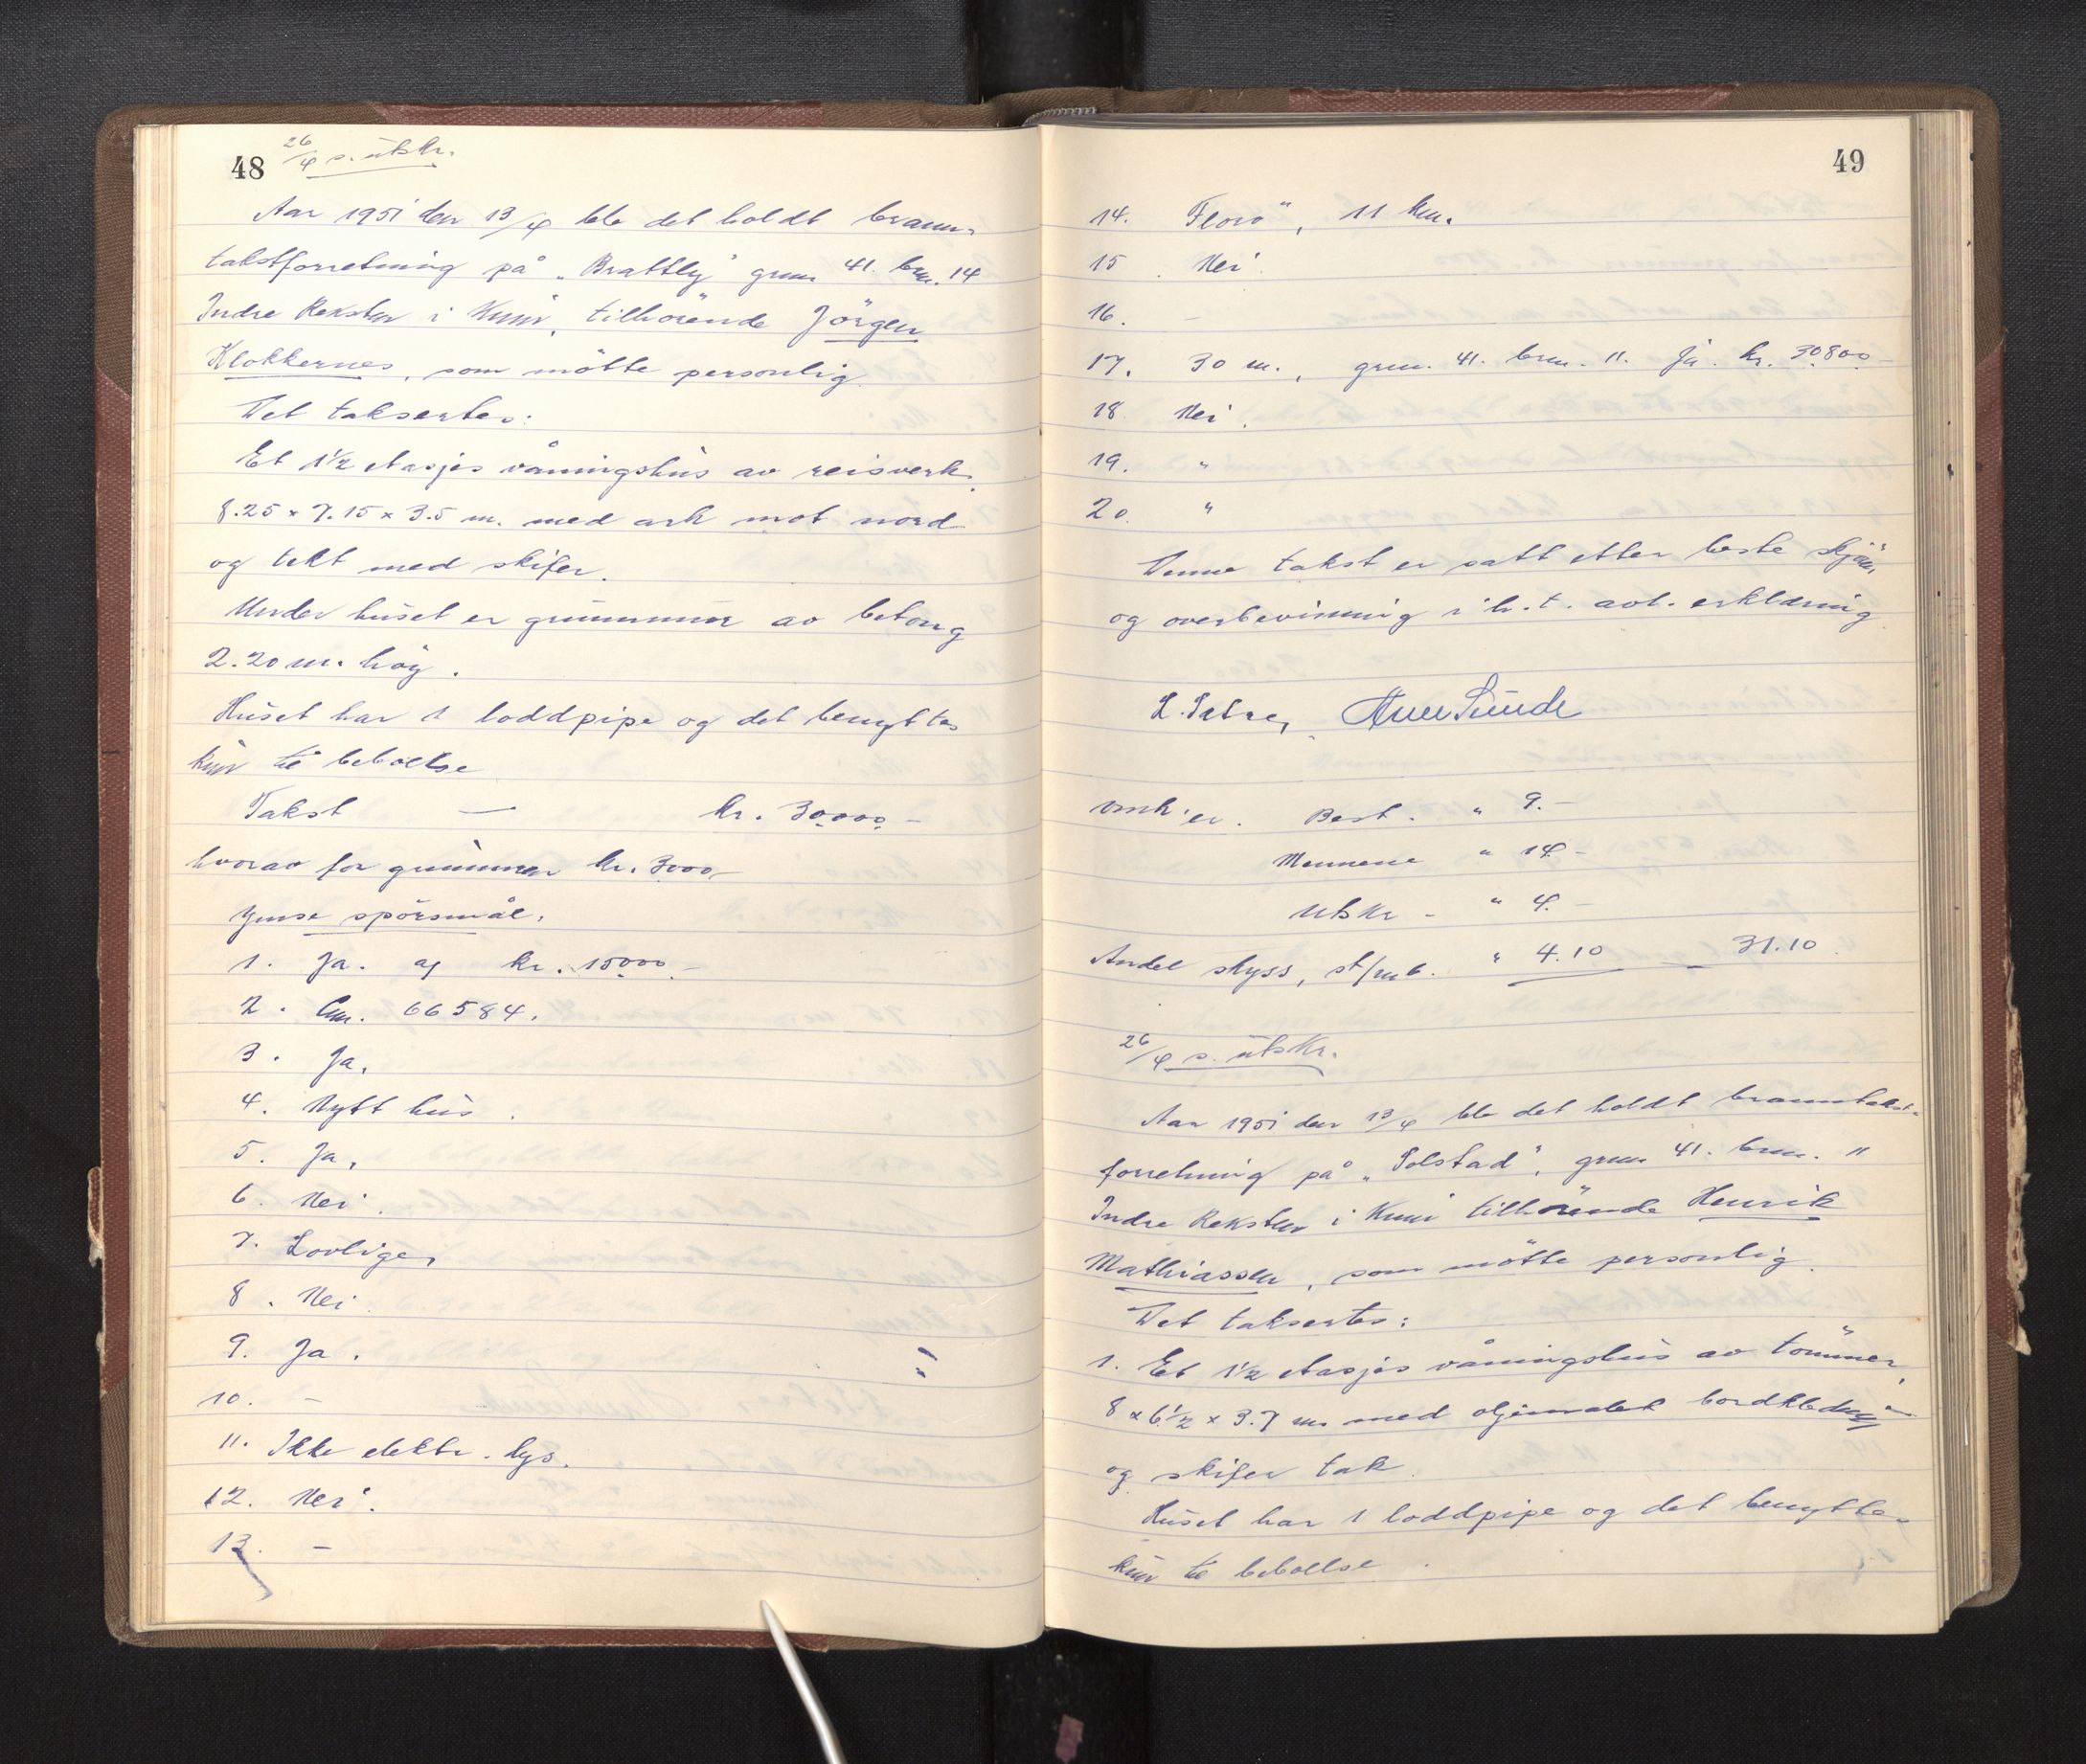 48
26/4 s. utskr.
Aar 1951 den 13/4 ble det holdt brann-
takstforretning på „Brattly" gnr. 41. bnr. 14
Indre Reksten i Kinn, tilhørende Jörgen
Klokkernes, som mötte personlig.
Det taksertes:
Et 1½ etasjes våningshus av reisverk
8.25 x 7.15 x 3.5 m. med ark mot nord
og tekt med skifer.
Under huset er grunnmur av betong
2.20 m. höy.
Huset har 1 loddpipe og det benyttes
kun til beboelse
Takst — kr. 30000 –
hvorav for grunnmur kr. 3000,–
Ymse spörsmål.
1. Ja. kr. 15000 –
2. Lnr. 66584.
3. Ja.
4. Nytt hus.
5. Ja.
6. Nei.
7. Lovlige,
8. Nei
9. Ja.
10. –
11. Ikke elektr. lys.
12. Nei.
13. –
49
14. Florö", 11 km.
15. Nei.
16. –
17. 30 m., gnr. 41. bnr. 11. Ja. kr. 30800 –
18. Nei.
19. "
20. "
Denne takst er satt etter beste skjönn
og overbevisning i h. t. avl. erklæring
Sunde
omk.er. Best. " 9. –
Mennene " 14 –
Utskr – " 4. –
Andel skyss, " 4.10 — 31.10
26/4 s. utskr.
Aar 1951 den 13/4 ble det holdt branntakst-
forretning på „Solstad", gnr. 41. bnr. 11
Indre Reksten i Kinn tilhörende Henrik
Mathiassen, som mötte personlig.
Det taksertes:
1. Et 1½ etasjes våningshus av tömmer,
8 x 6½ x 3.7 m. med oljemalet bordkledning
og skifer tak.
Huset har 1 loddpipe og det benyttes
kun til beboelse.